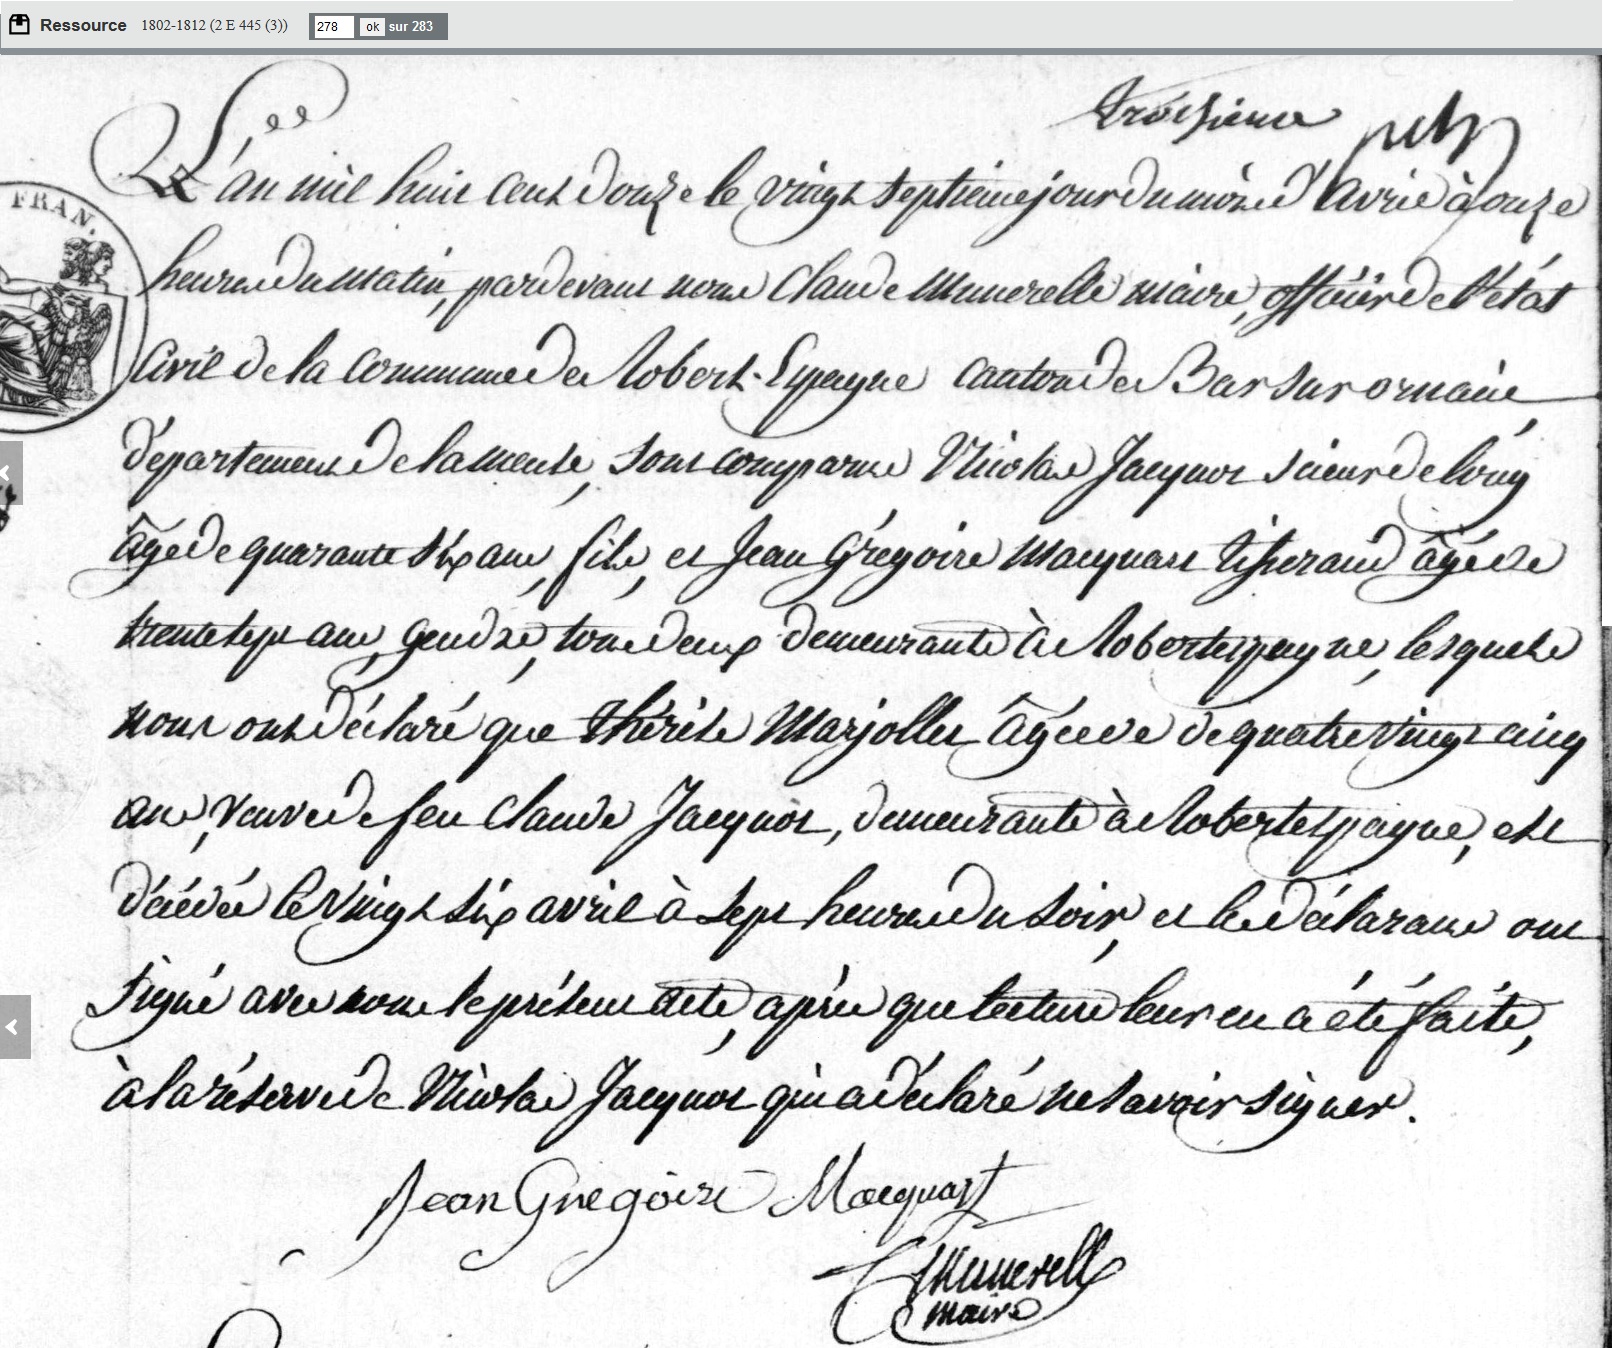 Ressource 1802-1812 (2 E 445 (3)) 278 ok sur 283
troisieme
FRAN.
L'an mil huit cent douze le vingt septieme jour du mois d'avril à onze
heures du matin, pardevant nous Claude Munerelle maire, officier de l'état
Civil de la commune de Robert-Espagne canton de Bar sur ornain,
département de la meuse, sont comparus Nicolas Jacquot scieur de long
âgé de quarante six ans, fils, et Jean Grégoire Macquart tisserand âgé de
trente sept ans, gendre, tous deux demeurants à Robertespagne, lesquels
nous ont déclaré que thérèse Marjollet âgée de de quatre vingt cinq
ans, veuve de feu Claude Jacquot, demeurante à Robertespagne, est
décédée le vingt six avril à sept heures du soir, et les déclarans ont
signé avec nous le présent acte, après que lecture leur en a été faite,
à la réserve de Nicolas Jacquot qui a déclaré ne savoir signer.
Jean Gregoire Macquart
C Munerelle
maire